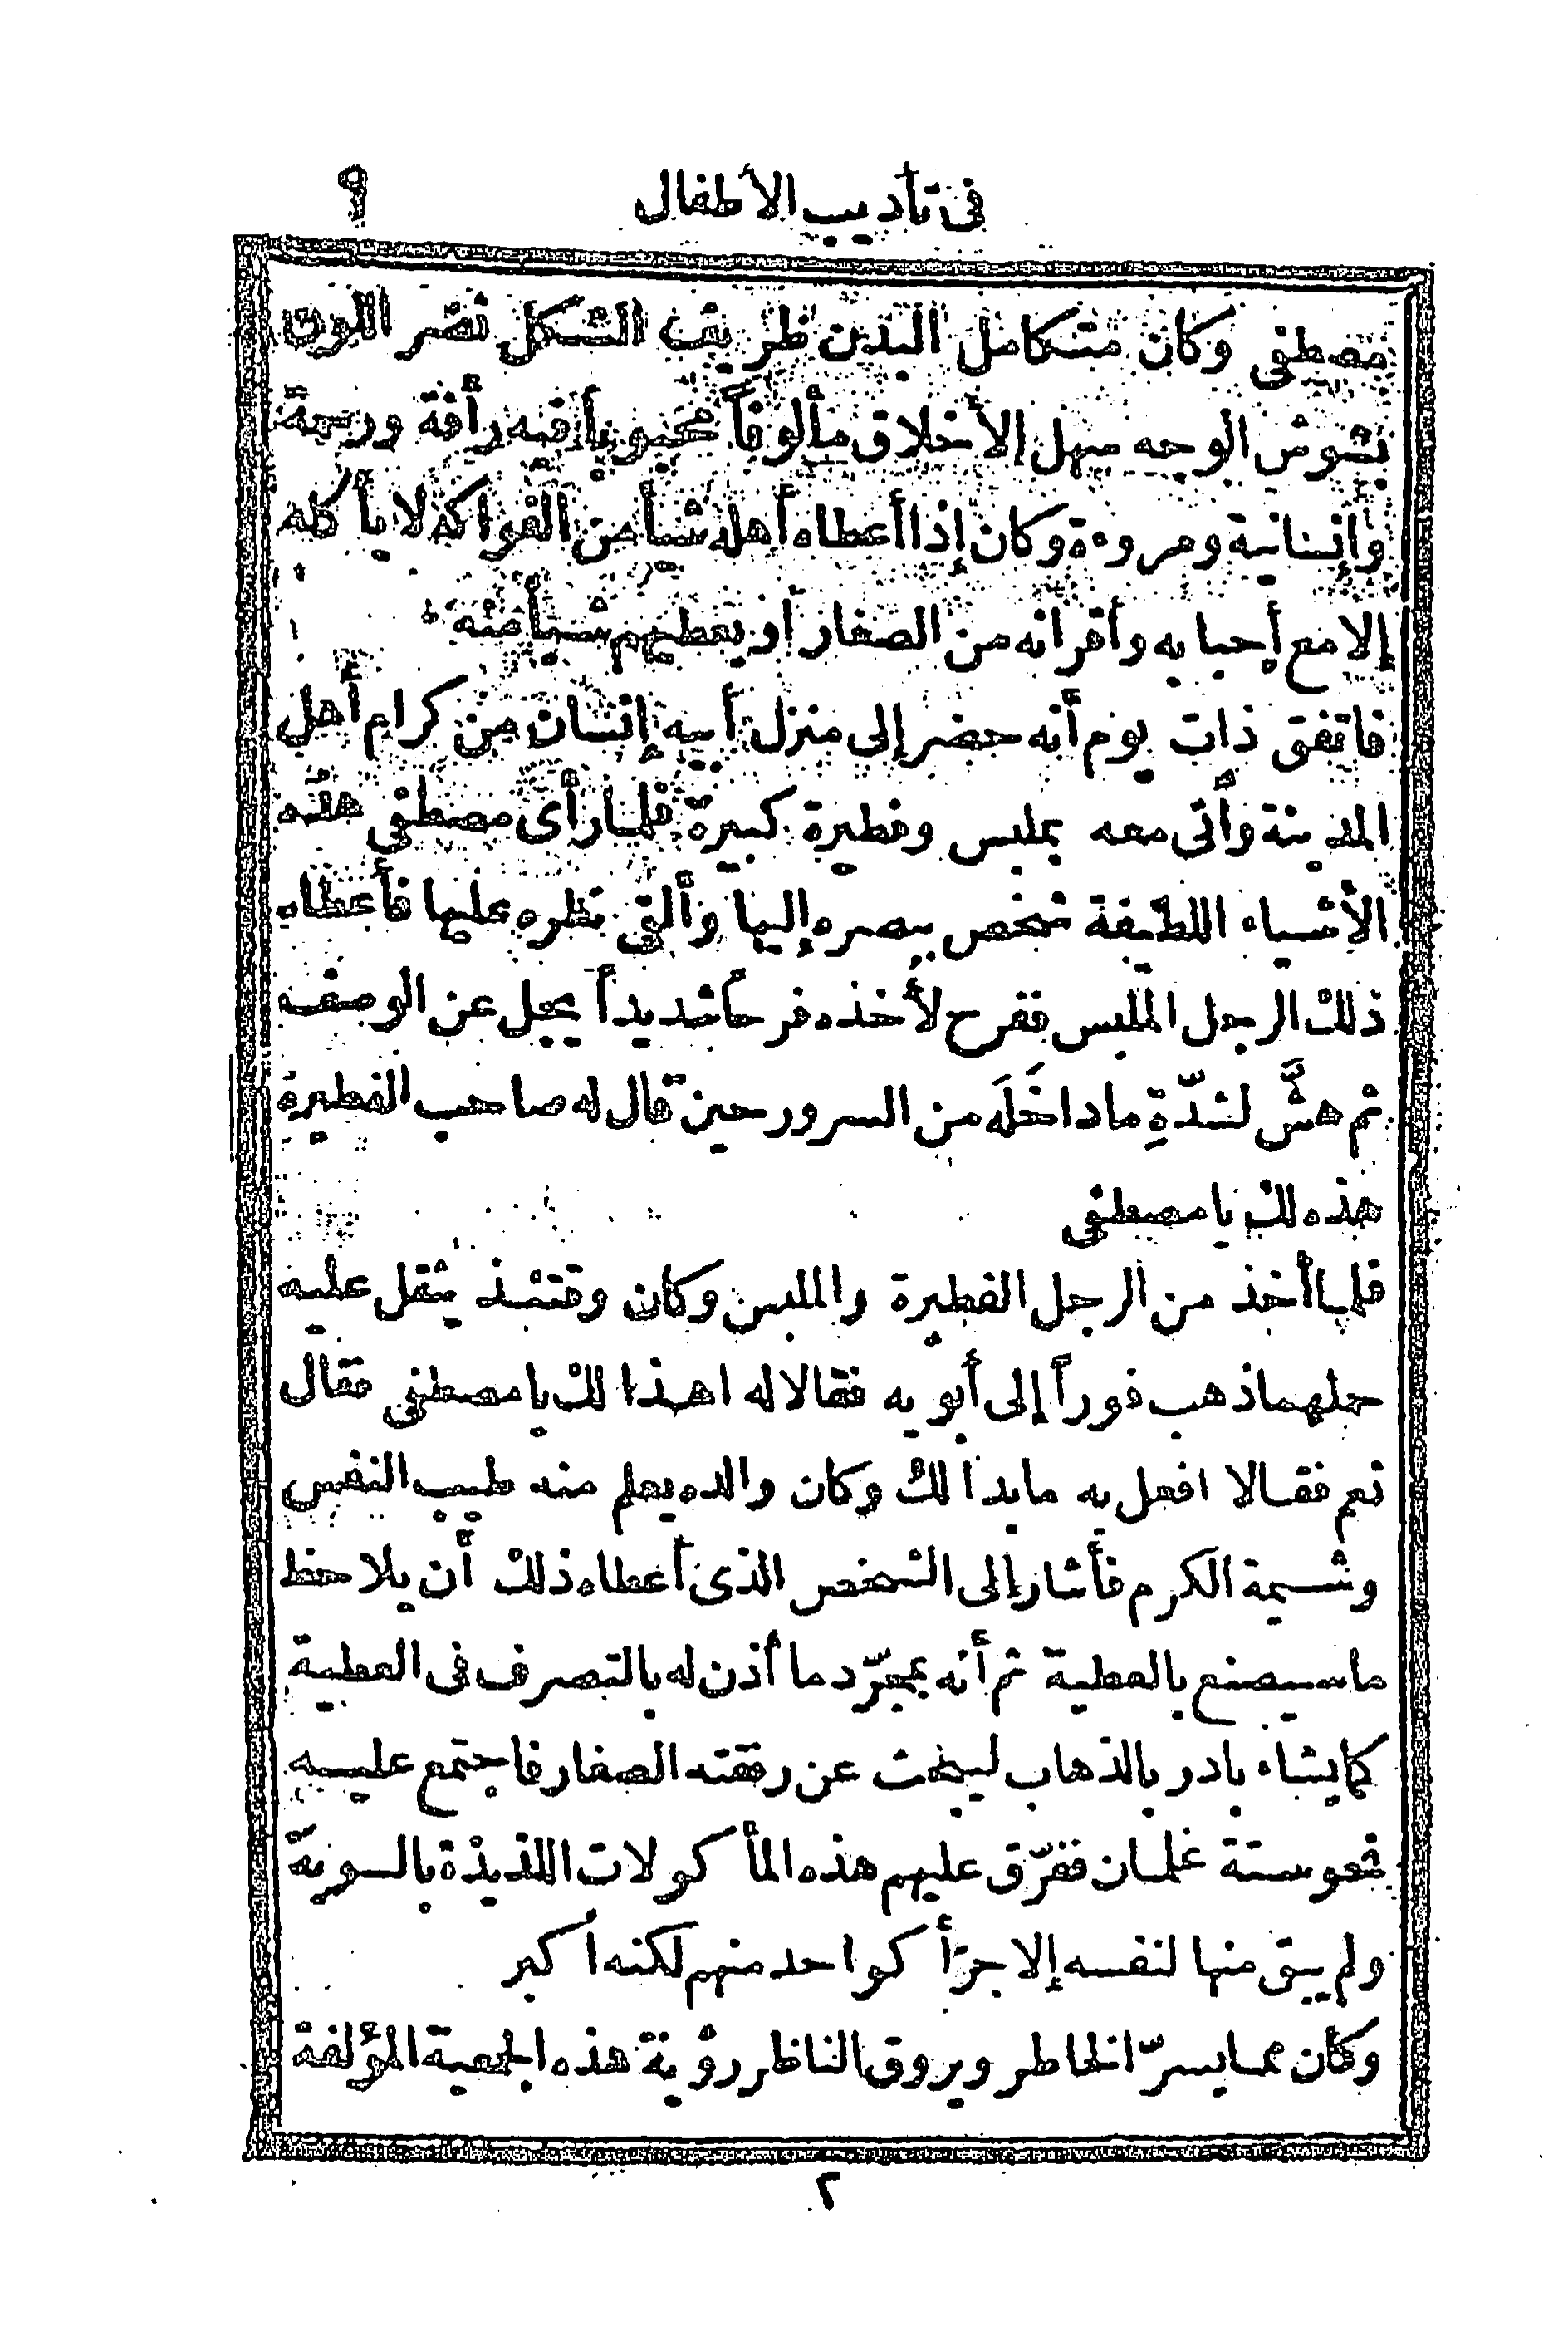 فى تأديب الأطفال ٩
مصطفى وكان متكامل البدن ظريف الشكل نضر اللون
بشوش الوجه سهل الأخلاق مألوفاً محبوباً فيه رأفة ورحمة
وإنسانية ومروءة وكان إذا أعطاه أهله شيأ من الفواكه لا يأكله
إلا مع أحبابه وأقرانه من الصغار أو يعطيهم شيأ منه
فاتفق ذات يوم أنه حضر إلى منزل أبيه إنسان من كرام أهل
المدينة وأتى معه بملبس وفطيرة كبيرة فلما رأى مصطفى هذه
الأشياء اللطيفة شخص ببصره إليها وألقى نظره عليها فأعطاه
ذلك الرجل الملبس ففرح لأخذه فرحاً شديداً يجل عن الوصف
ثم هشَّ لشدّةِ ما داخَلَه من السرور حين قال له صاحب الفطيرة
هذه لك يا مصطفى
فلما أخذ من الرجل الفطيرة والملبس وكان وقتئذ يثقل عليه
حملهما ذهب فوراً إلى أبويه فقالا له اهذا لك يا مصطفى فقال
نعم فقالا افعل به ما بدا لك وكان والده يعلم منه طيب النفس
وشيمة الكرم فأشار إلى الشخص الذى أعطاه ذلك أن يلاحظ
ما سيصنع بالعطية ثم أنه بمجرّد ما أذن له بالتصرف فى العطية
كما يشاء بادر بالذهاب ليبحث عن رفقته الصغار فاجتمع عليه
نحو ستة غلمان ففرّق عليهم هذه المأكولات اللذيذة بالسوية
ولم يبق منها لنفسه إلا جزأ كواحد منهم لكنه أكبر
وكان مما يسرّ الخاطر ويروق الناظر رؤية هذه الجمعية المؤلفة
٢